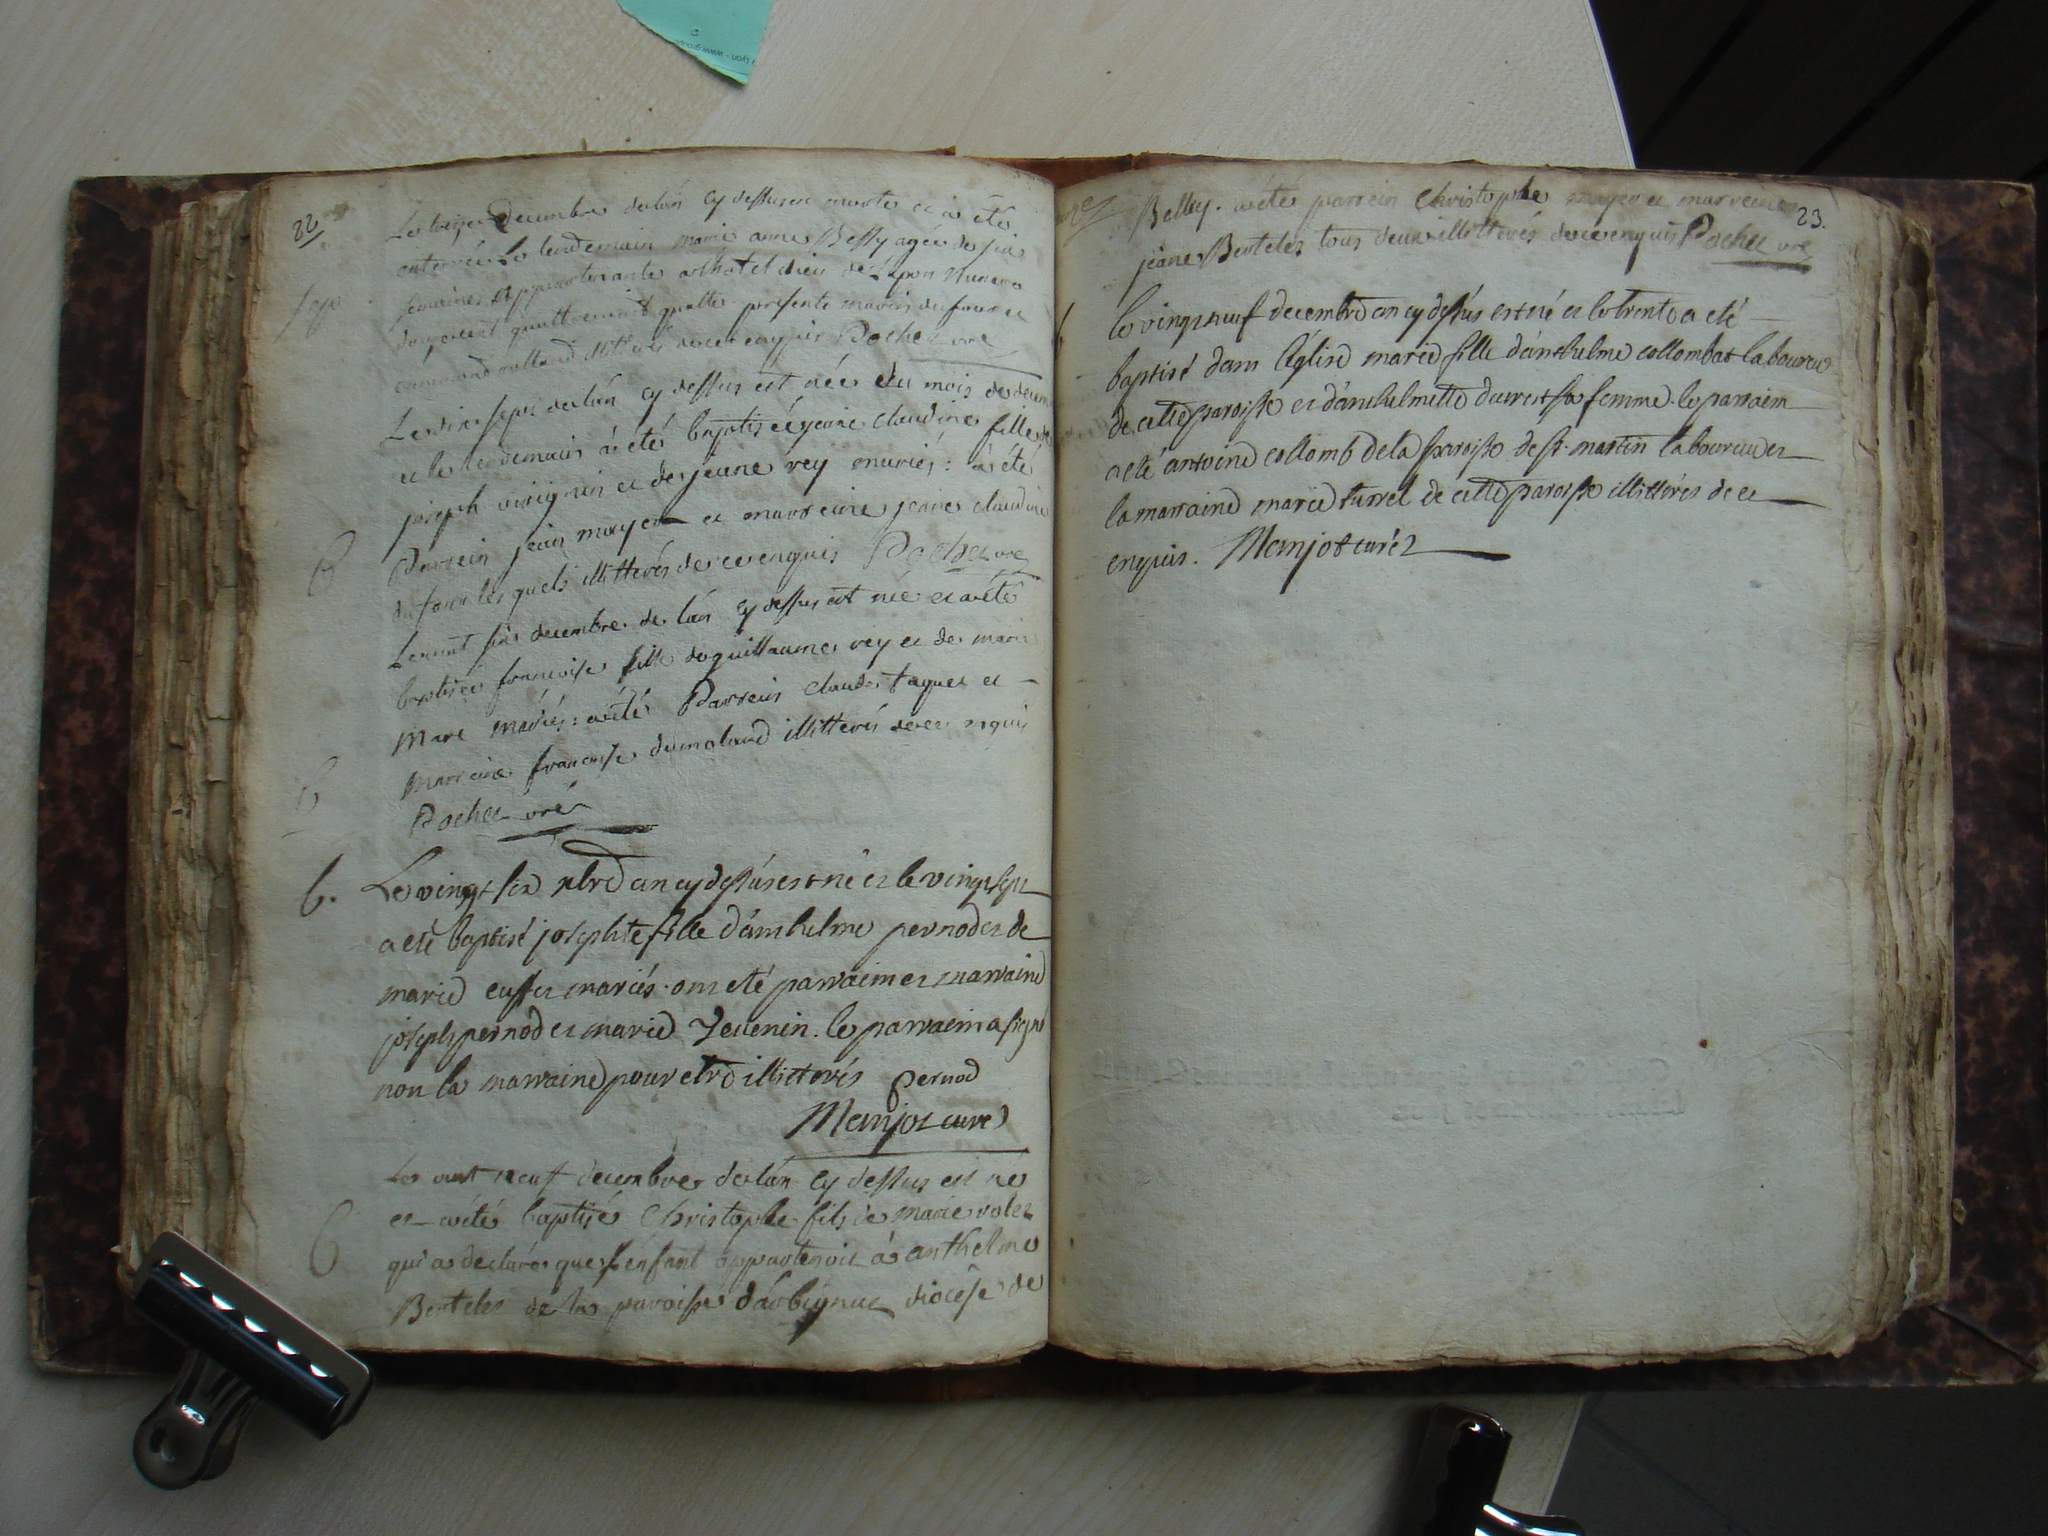 22
Le treize Decembre de lán cy dessus est morte et a été
enterrée Le lendemain marie anne Bessy agée de six
semaines appartenante a lhotel dieu de Lyon Numero
quattrevint quattre présents
illitterés de ce enquis Pochet vre
Sep
Le dix sept de lán cy dessus est née du mois de decem
et le lendemain à eté baptisée jeane claudine fille de
joseph et de jeane rey mariés : a été
Parrein jean mayer et marreine jeane claudine
dufour les quels illitterés de ce enquis Pochet vre
B
Le vint six decembre de lán cy dessus est née et a été
baptisée francoise fille de guillaume rey et de marie
Mare mariés : a été Parrein claude taquet et
marreine francoise dumoland illitterés de ce enquis
Pochet vre
B
b. Le vingt six xbre an cy dessús est né et le vingt sept
a eté baptisé josephte fille d'ánthelme pernod et de
marie cusset mariés. ont eté parrain et marraine
joseph pernod et marie Tevenin. le parrain a signé
non la marraine pour etre illitterés Pernod
Manjot curé
Le vint neuf decembre de lán cy dessus est né
et a été baptisé Christophe fils de marie rolet
qui a declaré que lénfant appartenoit à anthelme
Bertelet de la paroisse dárbignieu diocése de
B
23.
Belley. a été parrein Christophe mayer et marreine
jeane Bertelet tous deux illitterés de ce enquis Pochet vre
le vingt neuf decembre an cy dessús est né et le trente a eté
baptisé dans l'église marie fille dánthelme collombat laboureur
de cette paroisse et dánthelmette durest sa femme. le parrain
a eté antoine collomb de la paroisse de st. martin laboureur et
la marraine marie turrel de cette paroisse illitterés de ce
enquis. Manjot curé